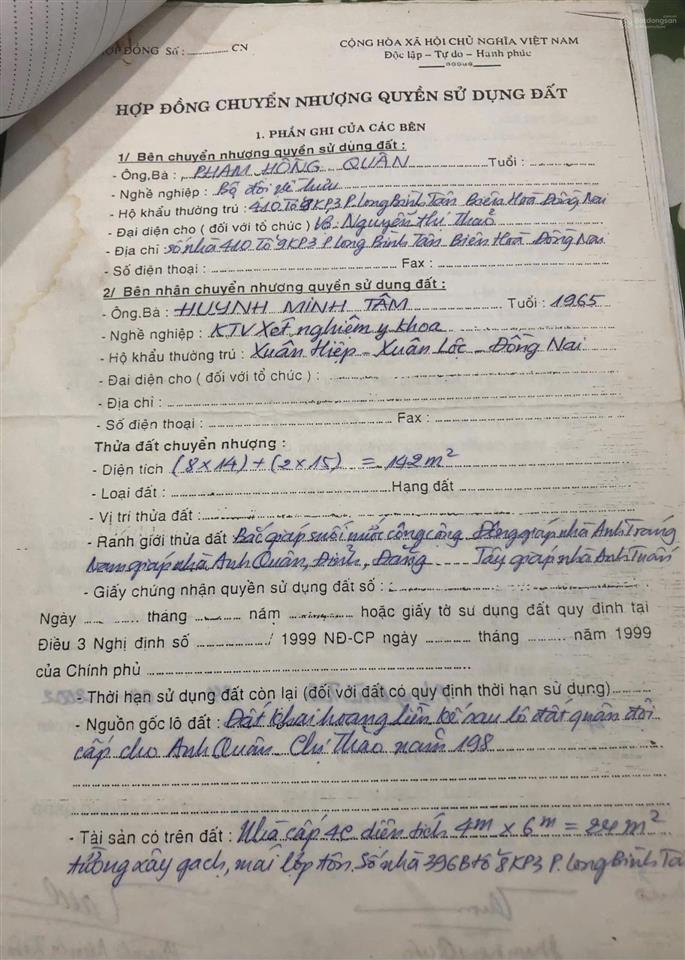 Batdongsan
HỢP ĐỒNG Số: .................. CN
CỘNG HÒA XÃ HỘI CHỦ NGHĨA VIỆT NAM
Độc lập – Tự do – Hạnh phúc
HỢP ĐỒNG CHUYỂN NHƯỢNG QUYỀN SỬ DỤNG ĐẤT
1. PHẦN GHI CỦA CÁC BÊN
1/ Bên chuyển nhượng quyền sử dụng đất :
- Ông,Bà : PHẠM HỒNG QUÂN Tuổi : ..................
- Nghề nghiệp : Bộ đội về hưu
- Hộ khẩu thường trú : 410 Tổ 8 KP3 P. Long Bình Tân Biên Hoà Đồng Nai
- Đại diện cho ( đối với tổ chức ) Vợ : Nguyễn Thị Thảo
- Địa chỉ : số nhà 410 Tổ 9 KP3 P Long Bình Tân Biên Hoà Đồng Nai
- Số điện thoại : .................. Fax : ..................
2/ Bên nhận chuyển nhượng quyền sử dụng đất :
- Ông.Bà : HUỲNH MINH TÂM Tuổi : 1965
- Nghề nghiệp : KTV Xét nghiệm y khoa
- Hộ khẩu thường trú : Xuân Hiệp - Xuân Lộc - Đồng Nai
- Đại diện cho ( đối với tổ chức ) : ..................
- Địa chỉ : ..................
- Số điện thoại : .................. Fax : ..................
Thửa đất chuyển nhượng :
- Diện tích (8 x 14) + (2 x 15) = 142 m²
- Loại đất : .................. Hạng đất ..................
- Vị trí thửa đất : ..................
- Ranh giới thửa đất Bắc giáp suối nước công cộng Đông giáp nhà Anh Trang
Nam giáp nhà Anh Quân, Định, Đăng Tây giáp nhà Anh Tuấn
- Giấy chứng nhận quyền sử dụng đất số : ..................
Ngày .......... tháng .......... năm .......... hoặc giấy tờ sư dụng đất quy định tại
Điều 3 Nghị định số ............/ 1999 NĐ-CP ngày .......... tháng .......... năm 1999
của Chính phủ ..................
- Thời hạn sử dụng đất còn lại (đối với đất có quy định thời hạn sử dụng)..........
- Nguồn gốc lô đất : Đất khai hoang liền kế sau lô đất quân đội
cấp cho Anh Quân Chị Thảo năm 198
- Tài sản có trên đất : Nhà cấp 4C diện tích 4m x 6m = 24 m²
tường xây gạch, mái lợp tôn. Số nhà 396B tổ 8 KP3 P. Long Bình Tân